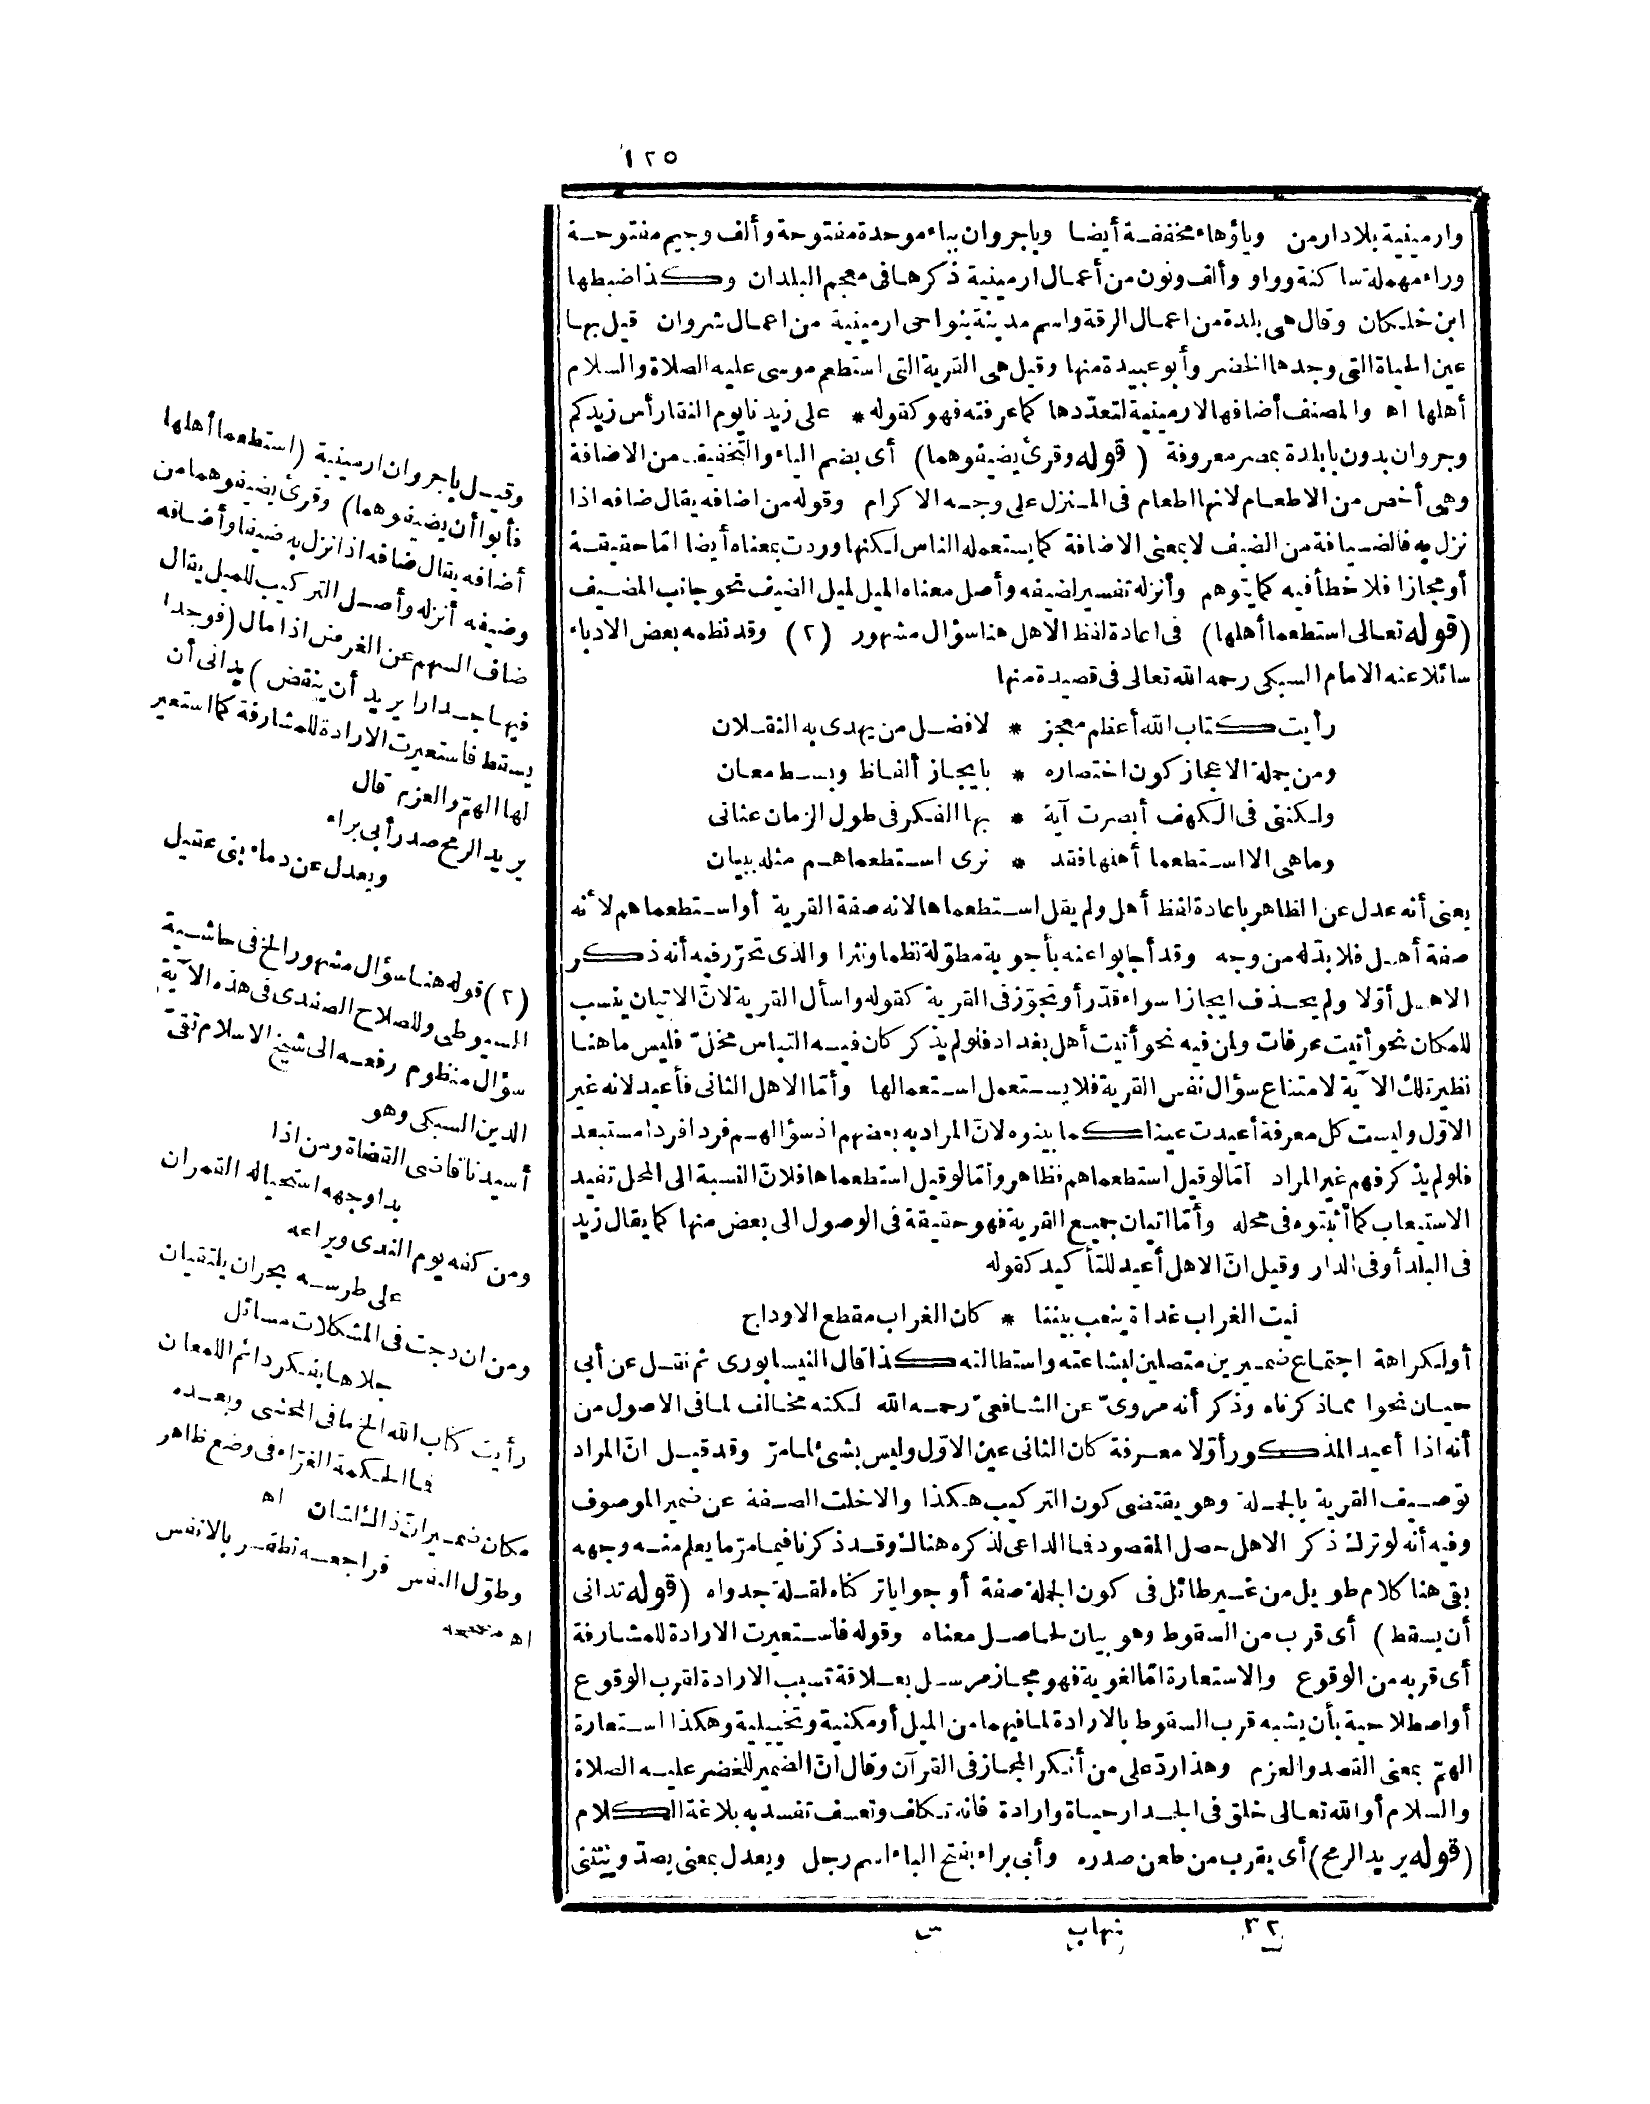 ١٢٥
وارمينية بلاد ارمن وياؤها مخففة أيضا وباجروان بباء موحدة مفتوحة وألف وجيم مفتوحة
وراء مهملة ساكنة وواو وألف ونون من أعمال ارمينية ذكرها فى معجم البلدان وكذا ضبطها
ابن خلكان وقال هى بلدة من اعمال الرقة واسم مدينة بنواحى ارمينية من اعمال شروان قيل بها
عين الحياة التى وجدها الخضر وأبو عبيدة منها وقيل هى القرية التى استطعم موسى عليه الصلاة والسلام
أهلها اه والمصنف أضافها لارمينية لتعدّدها كما عرفته فهو كقوله * على زيدنا يوم النقا رأس زيدكم
وجروان بدون با بلدة بمصر معروفة (قوله وقرئ يضيفوهما) أى بضم الياء والتخفيف من الاضافة
وهى أخص من الاطعام لانها اطعام فى المنزل على وجه الاكرام وقوله من اضافه يقال ضافه اذا
نزل به فالضيافة من الضيف لا بمعنى الاضافة كما يستعمله الناس لكنها وردت بمعناه أيضا امّا حقيقة
أو مجازا فلا خطأ فيه كما يتوهم وأنزله تفسير لضيفه وأصل معناه الميل لميل الضيف نحو جانب المضيف
(قوله تعالى استطعما أهلها) فى اعادة لفظ الاهل هنا سؤال مشهور (٢) وقد نظمه بعض الادباء
سائلا عنه الامام السبكى رحمه الله تعالى فى قصيدة منها
رأيت كتاب الله أعظم معجز * لافضل من يهدى به الثقلان
ومن جملة الاعجاز كون اختصاره * بايجاز ألفاظ وبسط معان
ولكننى فى الكهف أبصرت آية * بها الفكر فى طول الزمان عنانى
وماهى الا استطعما أهلها فقد * نرى استطعماهم مثله ببيان
يعنى أنه عدل عن الظاهر باعادة لفظ أهل ولم يقل استطعماها لانه صفة القرية أو استطعماهم لأنه
صفة أهل فلا بدّ له من وجه وقد أجابوا عنه بأجوبة مطوّلة نظما ونثرا والذى تحرّر فيه أنه ذكر
الاهل أوّلا ولم يحذف ايجازا سواء قدّر أو تجوّز فى القرية كقوله واسأل القرية لانّ الاتيان ينسب
للمكان نحو أتيت عرفات ولمن فيه نحو أتيت أهل بغداد فلو لم يذكر كان فيه التباس مخلّ فليس ما هنا
نظير تلك الآية لامتناع سؤال نفس القرية فلا يستعمل استعمالها وأمّا الاهل الثانى فأعيد لانه غير
الاوّل وليست كل معرفة أعيدت عينا كما بينوه لانّ المراد به بعضهم اذ سؤالهم فردا فردا مستبعد
فلو لم يذكر فهم غير المراد أمّا لو قيل استطعماهم فظاهر وأمّا لو قيل استطعماها فلانّ النسبة الى المحل تفيد
الاستيعاب كما أثبتوه فى محله وأمّا اتيان جميع القرية فهو حقيقة فى الوصول الى بعض منها كما يقال زيد
فى البلد أو فى الدار وقيل انّ الاهل أعيد للتأكيد كقوله
ليت الغراب غداة ينعب بيننا * كان الغراب مقطع الاوداج
أو لكراهة اجتماع ضميرين متصلين لبشاعته واستطالته كذا قال النيسابورى ثم نقل عن أبى
حيان نحوا مما ذكرناه وذكر أنه مروىّ عن الشافعىّ رحمه الله لكنه مخالف لما فى الاصول من
أنه اذا أعيد المذكور أوّلا معرفة كان الثانى عين الاوّل وليس بشئ لما مرّ وقد قيل انّ المراد
توصيف القرية بالجملة وهو يقتضى كون التركيب هكذا والا خلت الصفة عن ضمير الموصوف
وفيه أنه لو ترك ذكر الاهل حصل المقصود فما الداعى لذكره هنالك وقد ذكرنا فيما مرّ ما يعلم منه وجهه
بقى هنا كلام طويل من غير طائل فى كون الجملة صفة أو جوابا تركناه لقلة جدواه (قوله تدانى
أن يسقط) أى قرب من السقوط وهو بيان لحاصل معناه وقوله فاستعيرت الارادة للمشارفة
أى قربه من الوقوع والاستعارة امّا لغوية فهو مجاز مرسل بعلاقة تسبب الارادة لقرب الوقوع
أو اصطلاحية بأن يشبه قرب السقوط بالارادة لما فيهما من الميل أو مكنية وتخييلية وهكذا استعارة
الهمّ بمعنى القصد والعزم وهذا ردّ على من أنكر المجاز فى القرآن وقال انّ الضمير للخضر عليه الصلاة
والسلام أو الله تعالى خلق فى الجدار حياة وارادة فانه تكلف وتعسف تفسد به بلاغة الكلام
(قوله يريد الرمح) أى يقرب من طعن صدره وأبى براء بفتح الباء اسم رجل ويعدل بمعنى يصدّ وينثنى
وقيل باجروان ارمينية (استطعما أهلها
فأبوا أن يضيفوهما) وقرئ يضيفوهما من
أضافه يقال ضافه اذا نزل به ضيفا وأضافه
وضيفه أنزله وأصل التركيب للميل يقال
ضاف السهم عن الغرض اذا مال (فوجدا
فيها جدارا يريد أن ينقض) يدانى أن
يسقط فاستعيرت الارادة للمشارفة كما استعير
لها الهمّ والعزم قال
يريد الرمح صدر أبى براء
ويعدل عن دماء بنى عقيل
(٢) قوله هنا سؤال مشهور الخ فى حاشية
السيوطى وللصلاح الصفدى فى هذه الآية
سؤال منظوم رفعه الى شيخ الاسلام تقىّ
الدين السبكى وهو
أسيدنا قاضى القضاة ومن اذا
بدا وجهه استحيا له القمران
ومن كفه يوم الندى ويراعه
على طرسه بحران يلتقيان
ومن ان دجت فى المشكلات مسائل
جلاها بفكر دائم اللمعان
رأيت كتاب الله الخ ما فى المحشى وبعده
فما الحكمة الغرّاء فى وضع ظاهر
مكان ضمير انّ ذاك لشان اه
وطوّل النفس فراجعه تظفر بالانفس
اه مصححه
٣٢ شهاب س